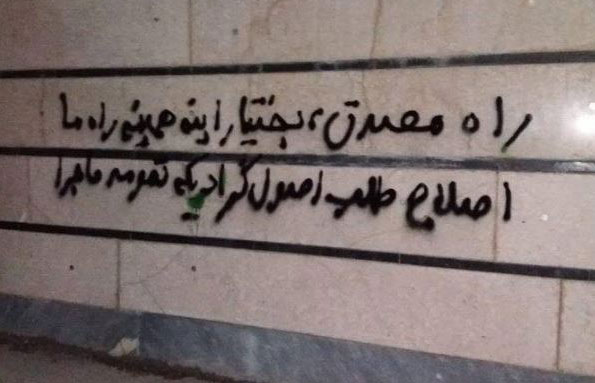 راه مصدق، بختیار اینه همینه راه ما
اصلاح طلب اصول گرا دیگه تمومه ماجرا